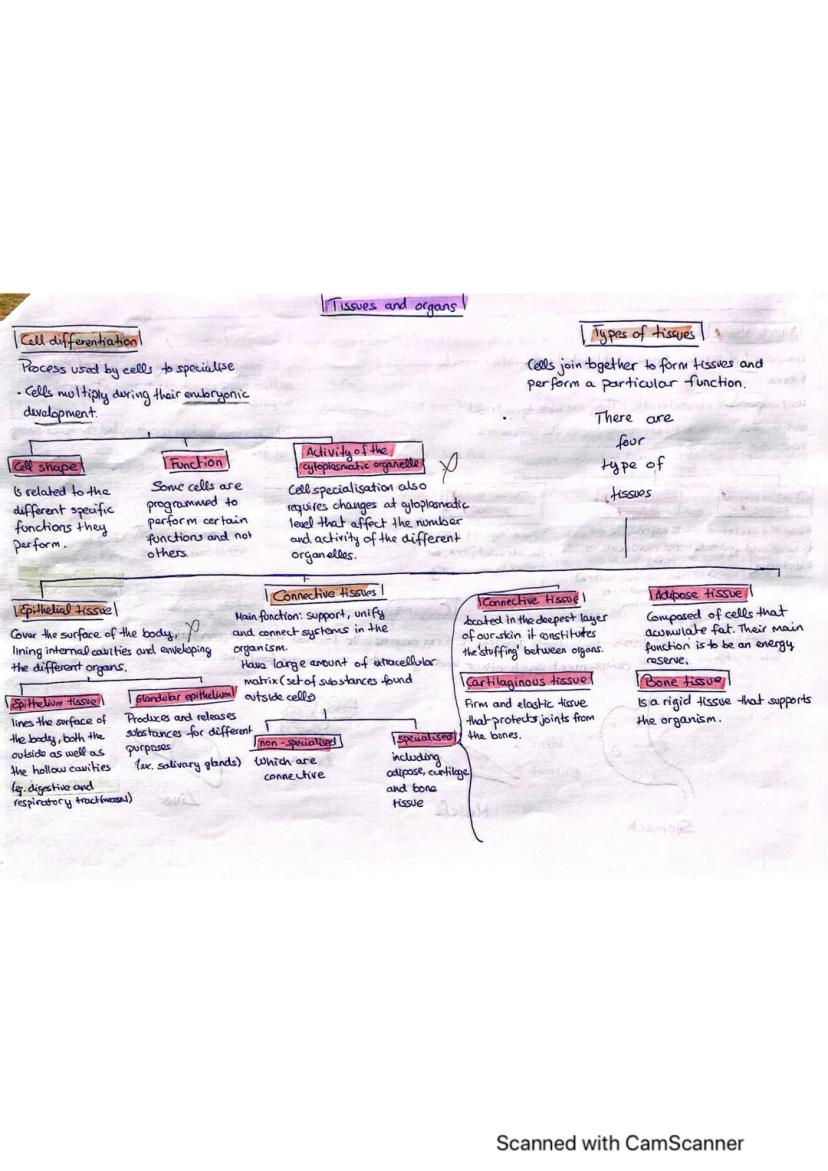 Tissues and organs
Cell differentiation
Process used by cells to specialise
• Cells multiply during their embryonic
development.
Types of tissues
Cells join together to form tissues and
perform a particular function.
There are
four
type of
tissues
Cell shape
Is related to the
different specific
functions they
perform.
Function
Some cells are
programmed to
perform certain
functions and not
others.
Activity of the
cytoplasmatic organelle
Cell specialisation also
requires changes at cytoplasmatic
level that affect the number
and activity of the different
organelles.
Epithelial tissue
Cover the surface of the body,
lining internal cavities and enveloping
the different organs.
Epithelium tissue
lines the surface of
the body, both the
outside as well as
the hollow cavities
(eg. digestive and
respiratory tract
Glandular epithelium
Produces and releases
substances for different
purposes
(ex. salivary glands)
Connective tissues
Main function: support, unify
and connect systems in the
organism.
Have large amount of intracellular
matrix (set of substances found
outside cells)
non-specialised
Which are
connective
specialised
including
adipose, cartilage
and bone
tissue
Connective tissue
Located in the deepest layer
of our skin it constitutes
the 'stuffing' between organs.
Cartilaginous tissue
Firm and elastic tissue
that protects joints from
the bones.
Adipose tissue
Composed of cells that
acumulate fat. Their main
function is to be an energy
reserve.
Bone tissue
Is a rigid tissue that supports
the organism.
Scanned with CamScanner